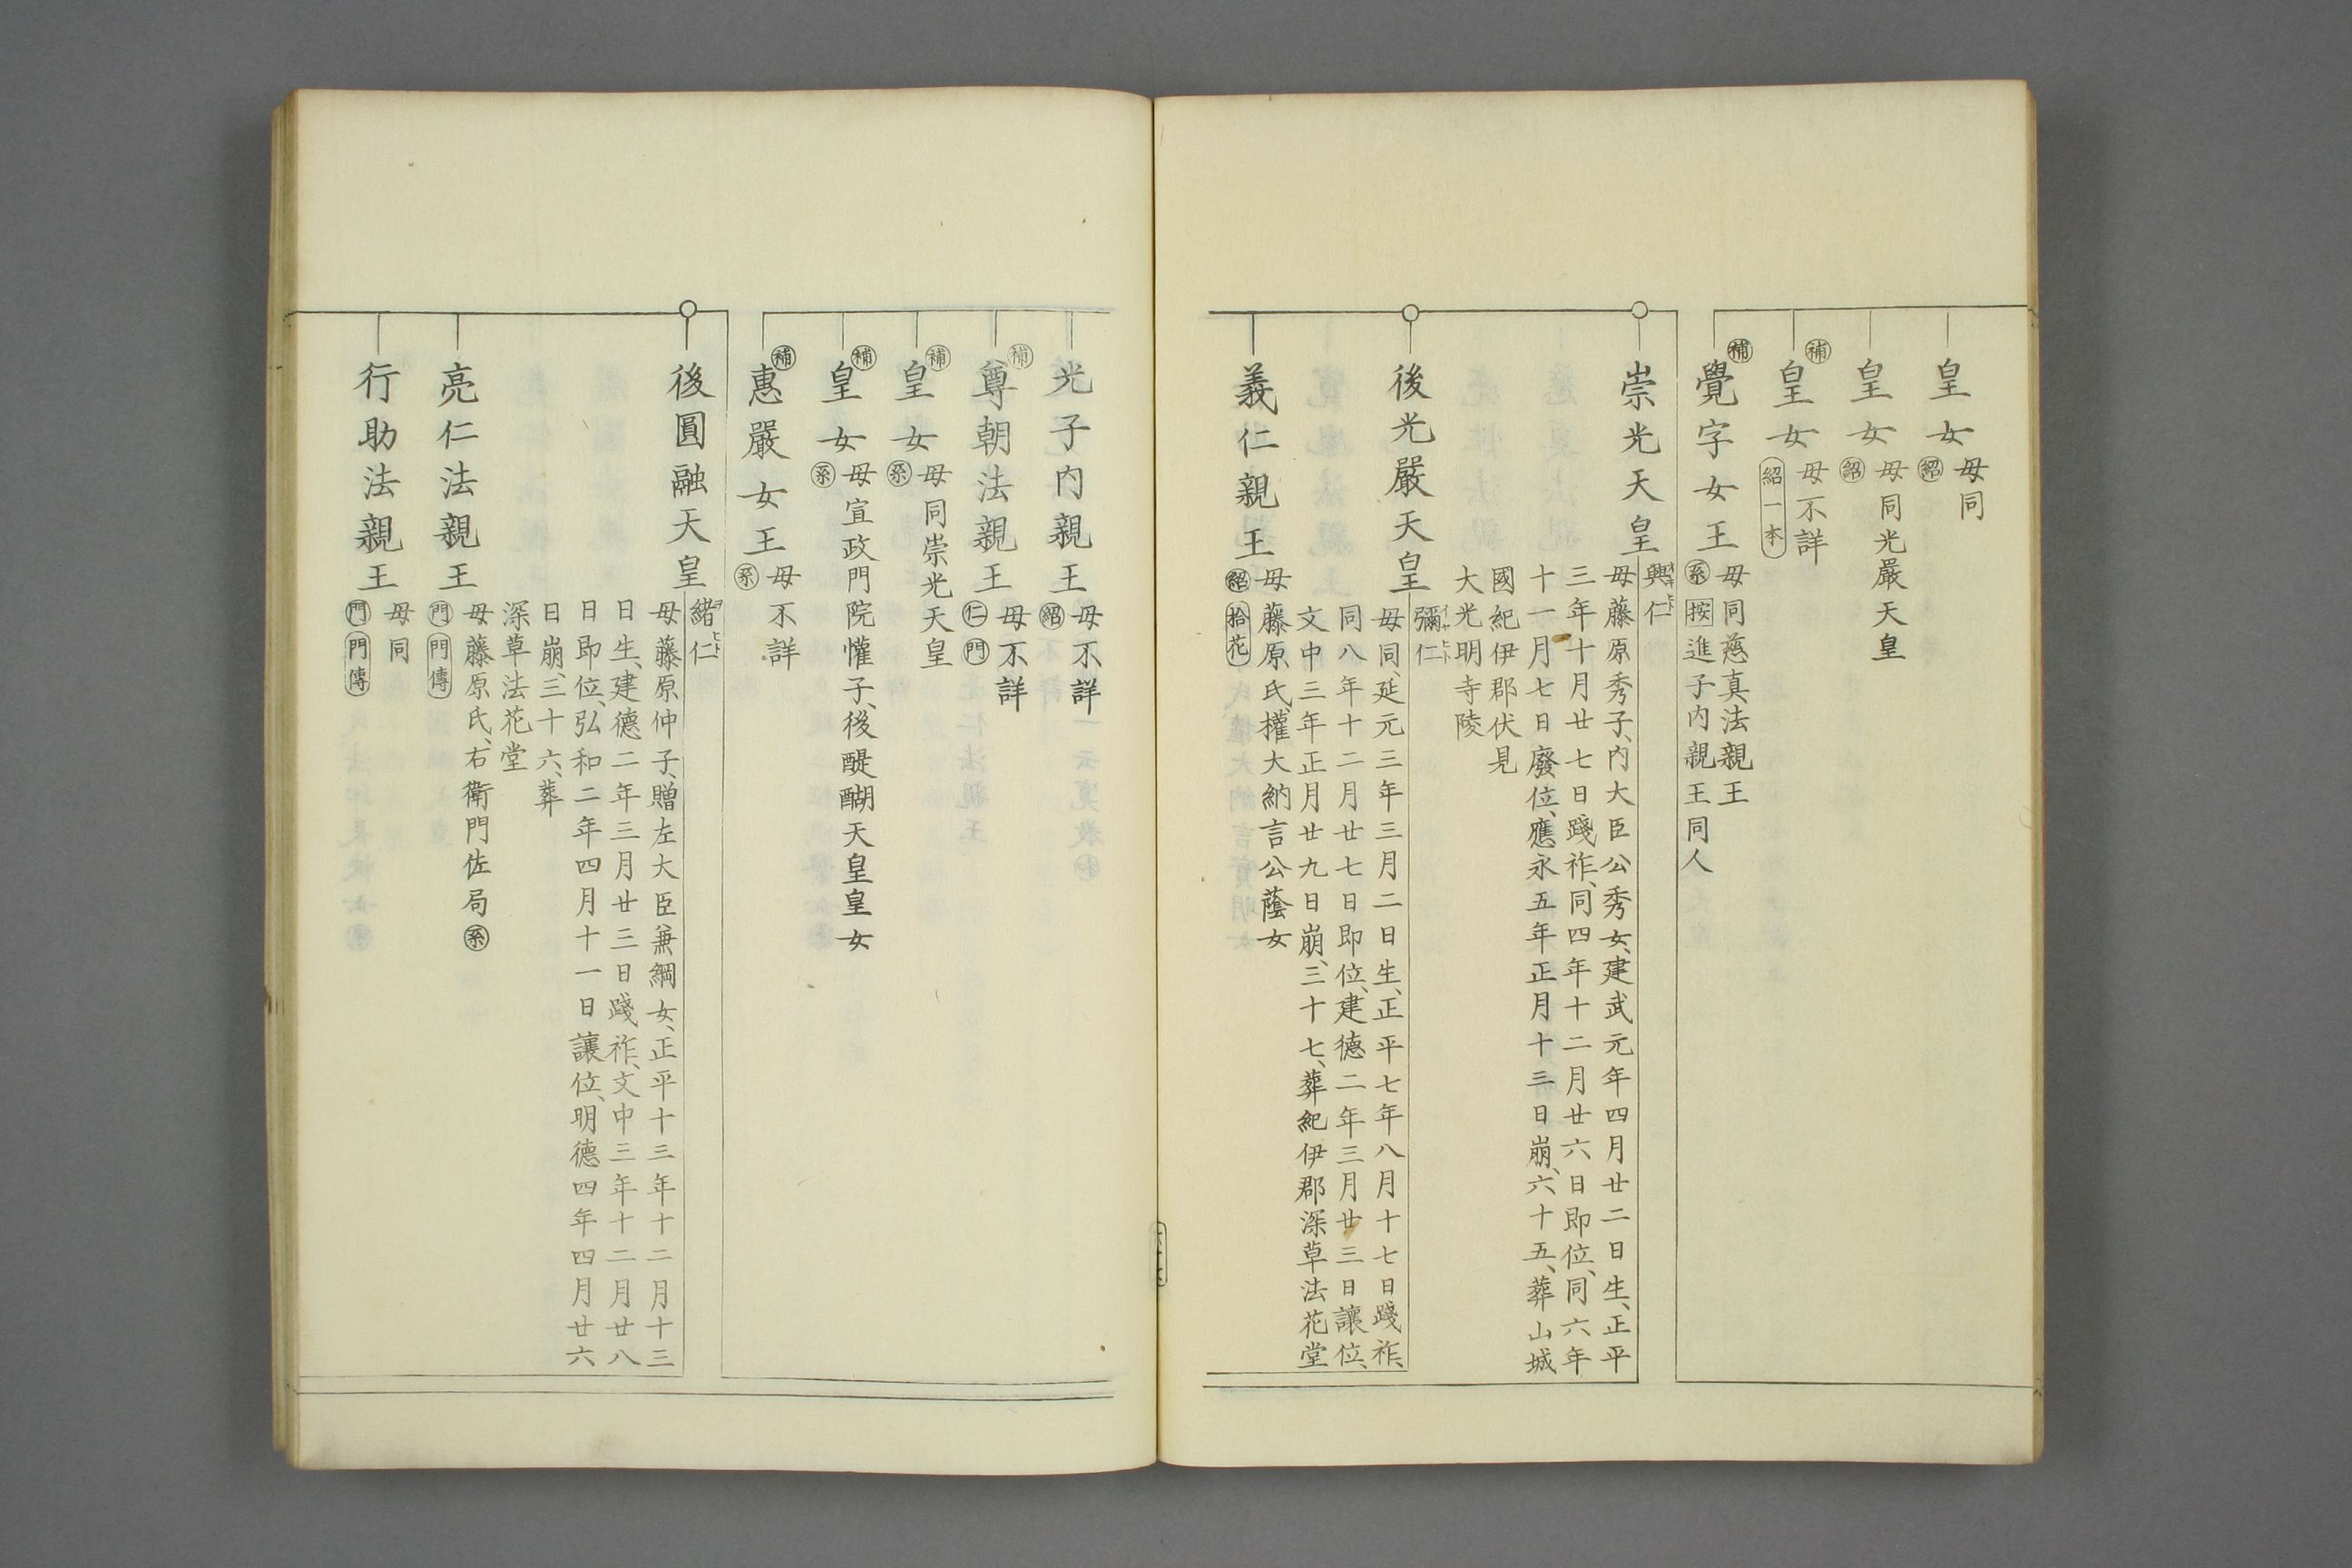 皇女 母同 紹
皇女 母同光嚴天皇 紹
補 皇女 母不詳 紹一本
補 覺字女王 母同慈真法親王
系 按 進子内親王同人
崇光天皇
興仁
母藤原秀子、内大臣公秀女、建武元年四月廿二日生、正平
三年十月廿七日踐祚、同四年十二月廿六日即位、同六年
十一月七日廢位、應永五年正月十三日崩、六十五、葬山城
國紀伊郡伏見
大光明寺陵
後光嚴天皇
彌仁
母同、延元三年三月二日生、正平七年八月十七日踐祚、
同八年十二月廿七日即位、建德二年三月廿三日讓位、
文中三年正月廿九日崩、三十七、葬紀伊郡深草法花堂
義仁親王 母藤原氏、權大納言公蔭女
紹 拾花
光子内親王 母不詳 紹
補 尊朝法親王 母不詳 仁 門
補 皇女 母同崇光天皇 系
補 皇女 母宣政門院懽子、後醍醐天皇皇女 系
補 惠嚴女王 母不詳 系
後圓融天皇
緒仁
母藤原仲子、贈左大臣兼綱女、正平十三年十二月十三
日生、建德二年三月廿三日踐祚、文中三年十二月廿八
日即位、弘和二年四月十一日讓位、明德四年四月廿六
日崩、三十六、葬
深草法花堂
亮仁法親王 母藤原氏、右衛門佐局 系
門 門傳
行助法親王 母同
門 門傳